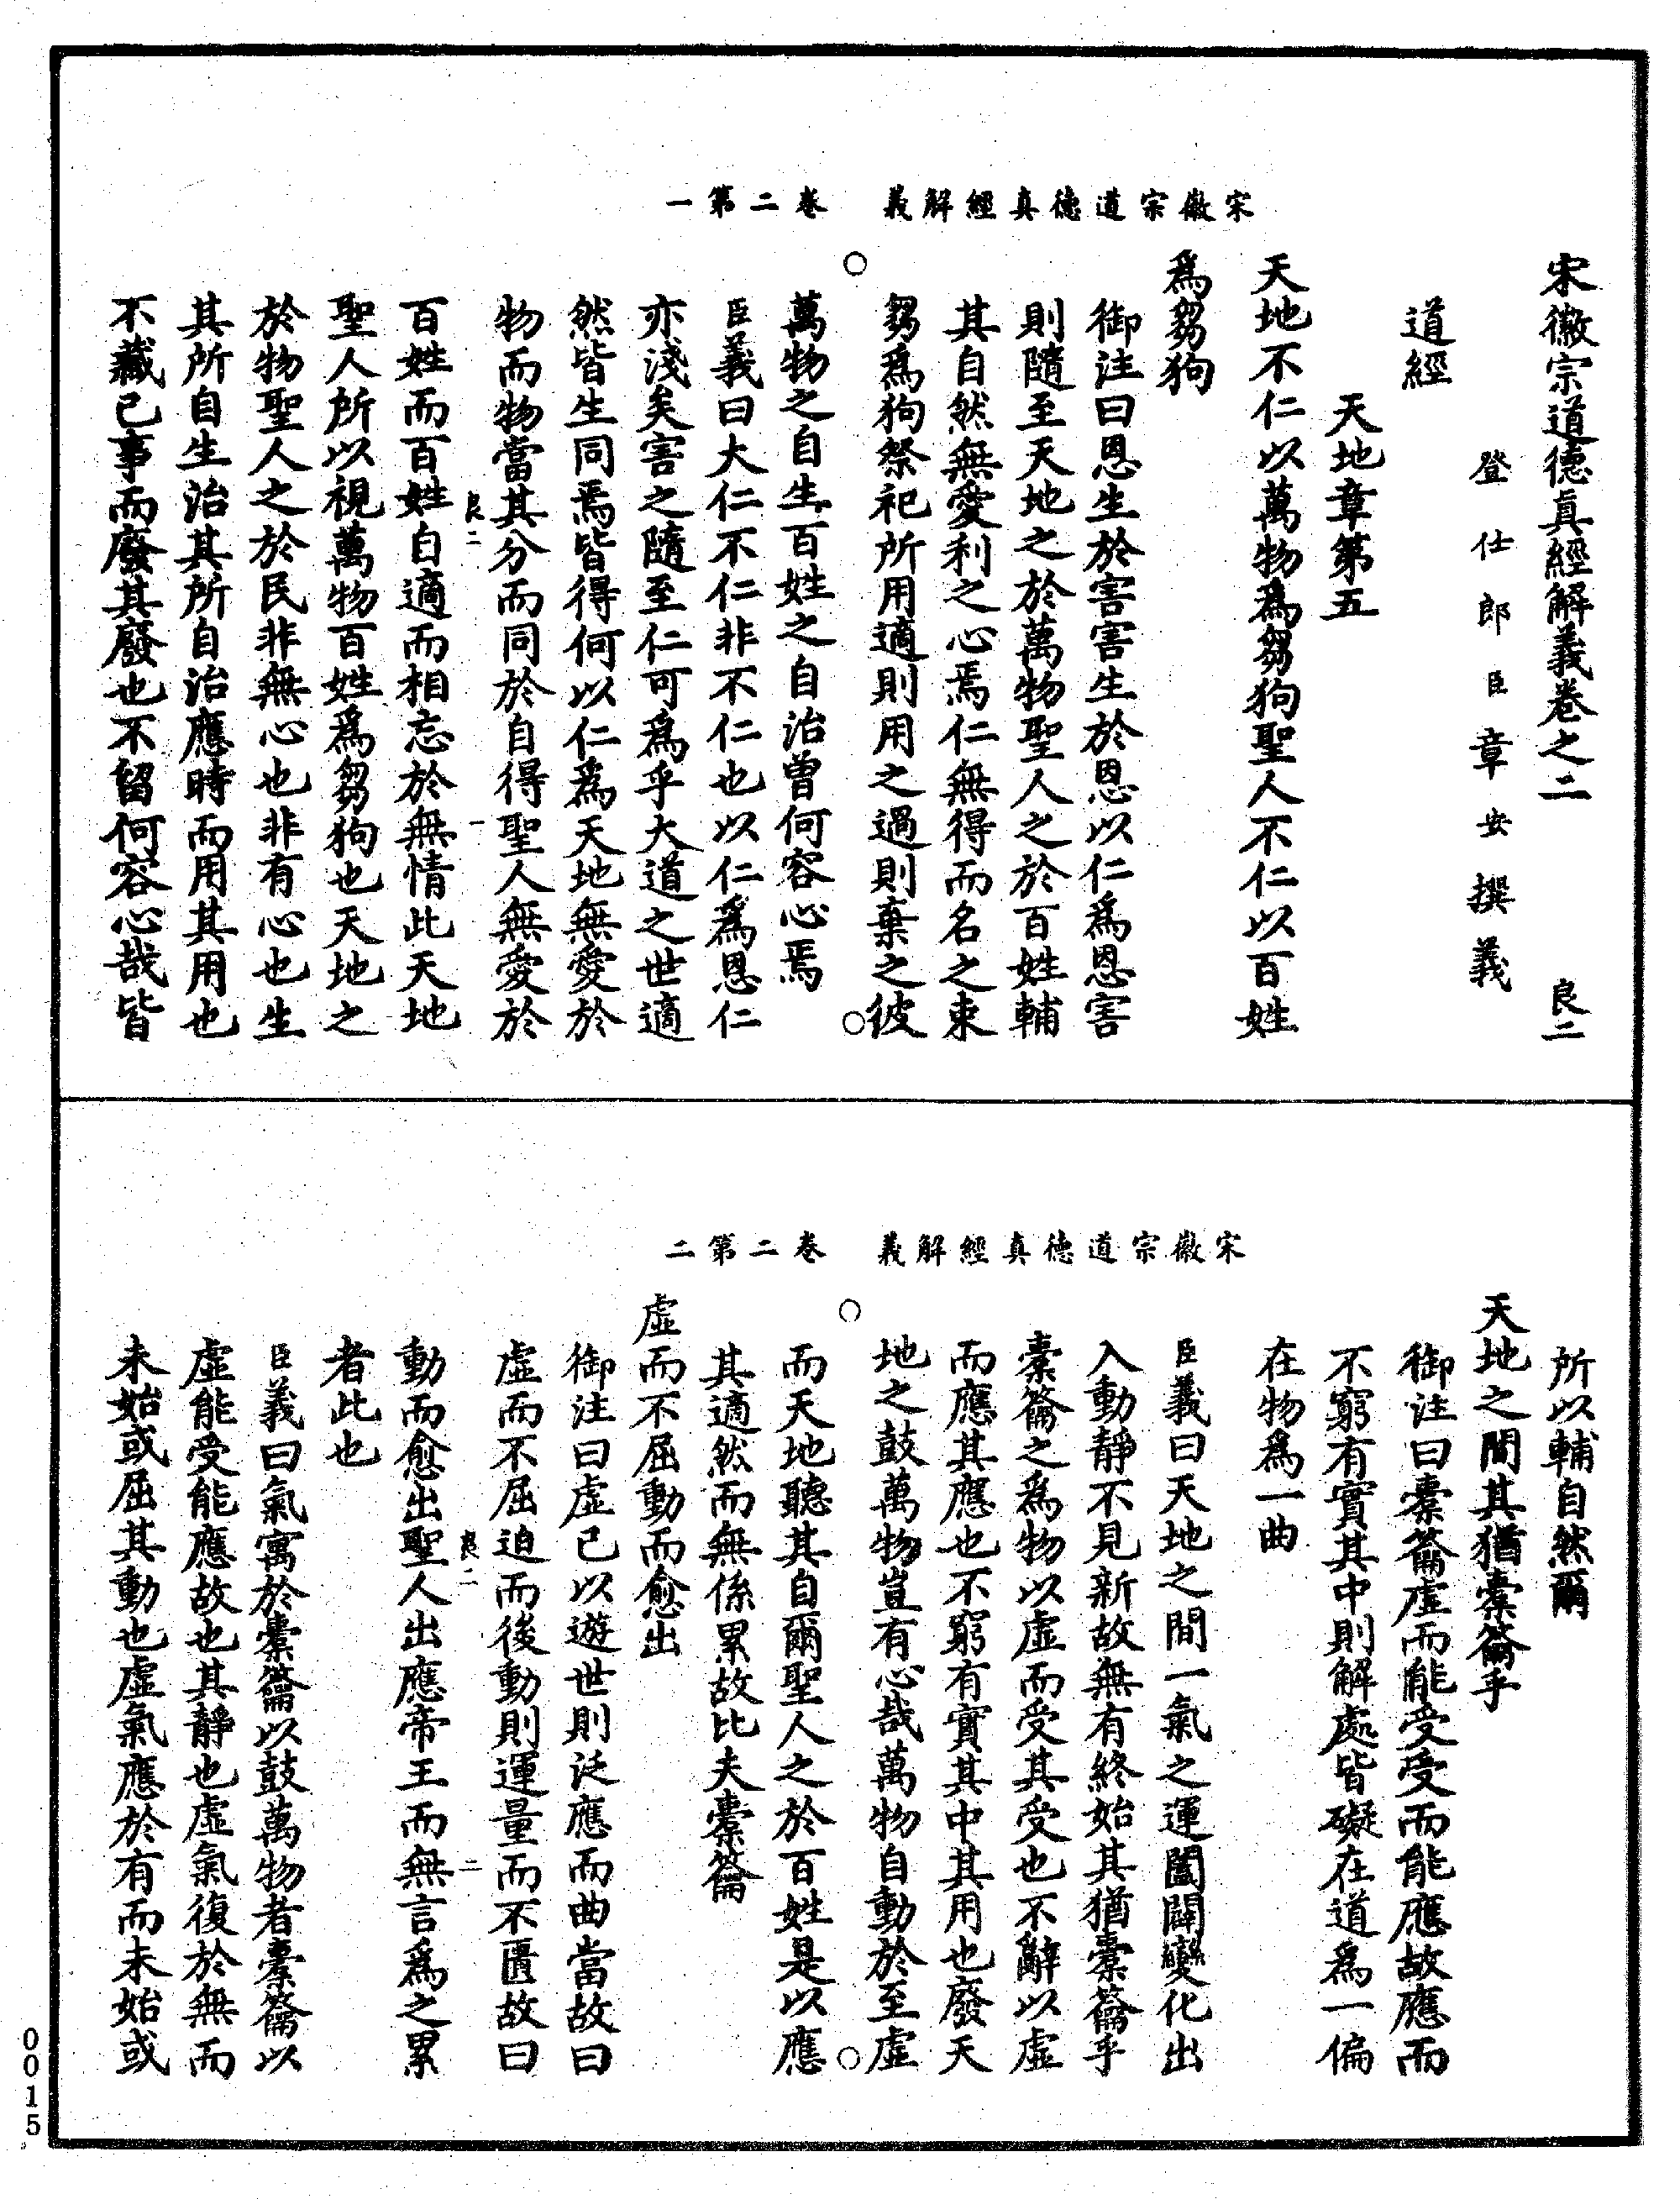 宋徽宗道德真經解義　卷二第一
宋徽宗道德真經解義卷之二　良二
登仕郎臣章安撰義
道經
天地章第五
天地不仁以萬物為芻狗聖人不仁以百姓
為芻狗
御注曰恩生於害害生於恩以仁為恩害
則隨至天地之於萬物聖人之於百姓輔
其自然無愛利之心焉仁無得而名之束
芻為狗祭祀所用適則用之過則棄之彼
萬物之自生百姓之自治曾何容心焉
臣義曰大仁不仁非不仁也以仁為恩仁
亦淺矣害之隨至仁可為乎大道之世適
然皆生同焉皆得何以仁為天地無愛於
物而物當其分而同於自得聖人無愛於
良二　一
百姓而百姓自適而相忘於無情此天地
聖人所以視萬物百姓為芻狗也天地之
於物聖人之於民非無心也非有心也生
其所自生治其所自治應時而用其用也
不藏已事而廢其廢也不留何容心哉皆
宋徽宗道德真經解義　卷二第二
所以輔自然爾
天地之間其猶橐籥乎
御注曰橐籥虛而能受受而能應故應而
不窮有實其中則觧處皆礙在道為一偏
在物為一曲
臣義曰天地之間一氣之運闔闢變化出
入動靜不見新故無有終始其猶橐籥乎
橐籥之為物以虛而受其受也不辭以虛
而應其應也不窮有實其中其用也廢天
地之鼓萬物豈有心哉萬物自動於至虛
而天地聽其自爾聖人之於百姓是以應
其適然而無係累故比夫橐籥
虛而不屈動而愈出
御注曰虛已以遊世則泛應而曲當故曰
虛而不屈迫而後動則運量而不匱故曰
良二　二
動而愈出聖人出應帝王而無言為之累
者此也
臣義曰氣寓於橐籥以鼓萬物者橐籥以
虛能受能應故也其靜也虛氣復於無而
未始或屈其動也虛氣應於有而未始或
0015